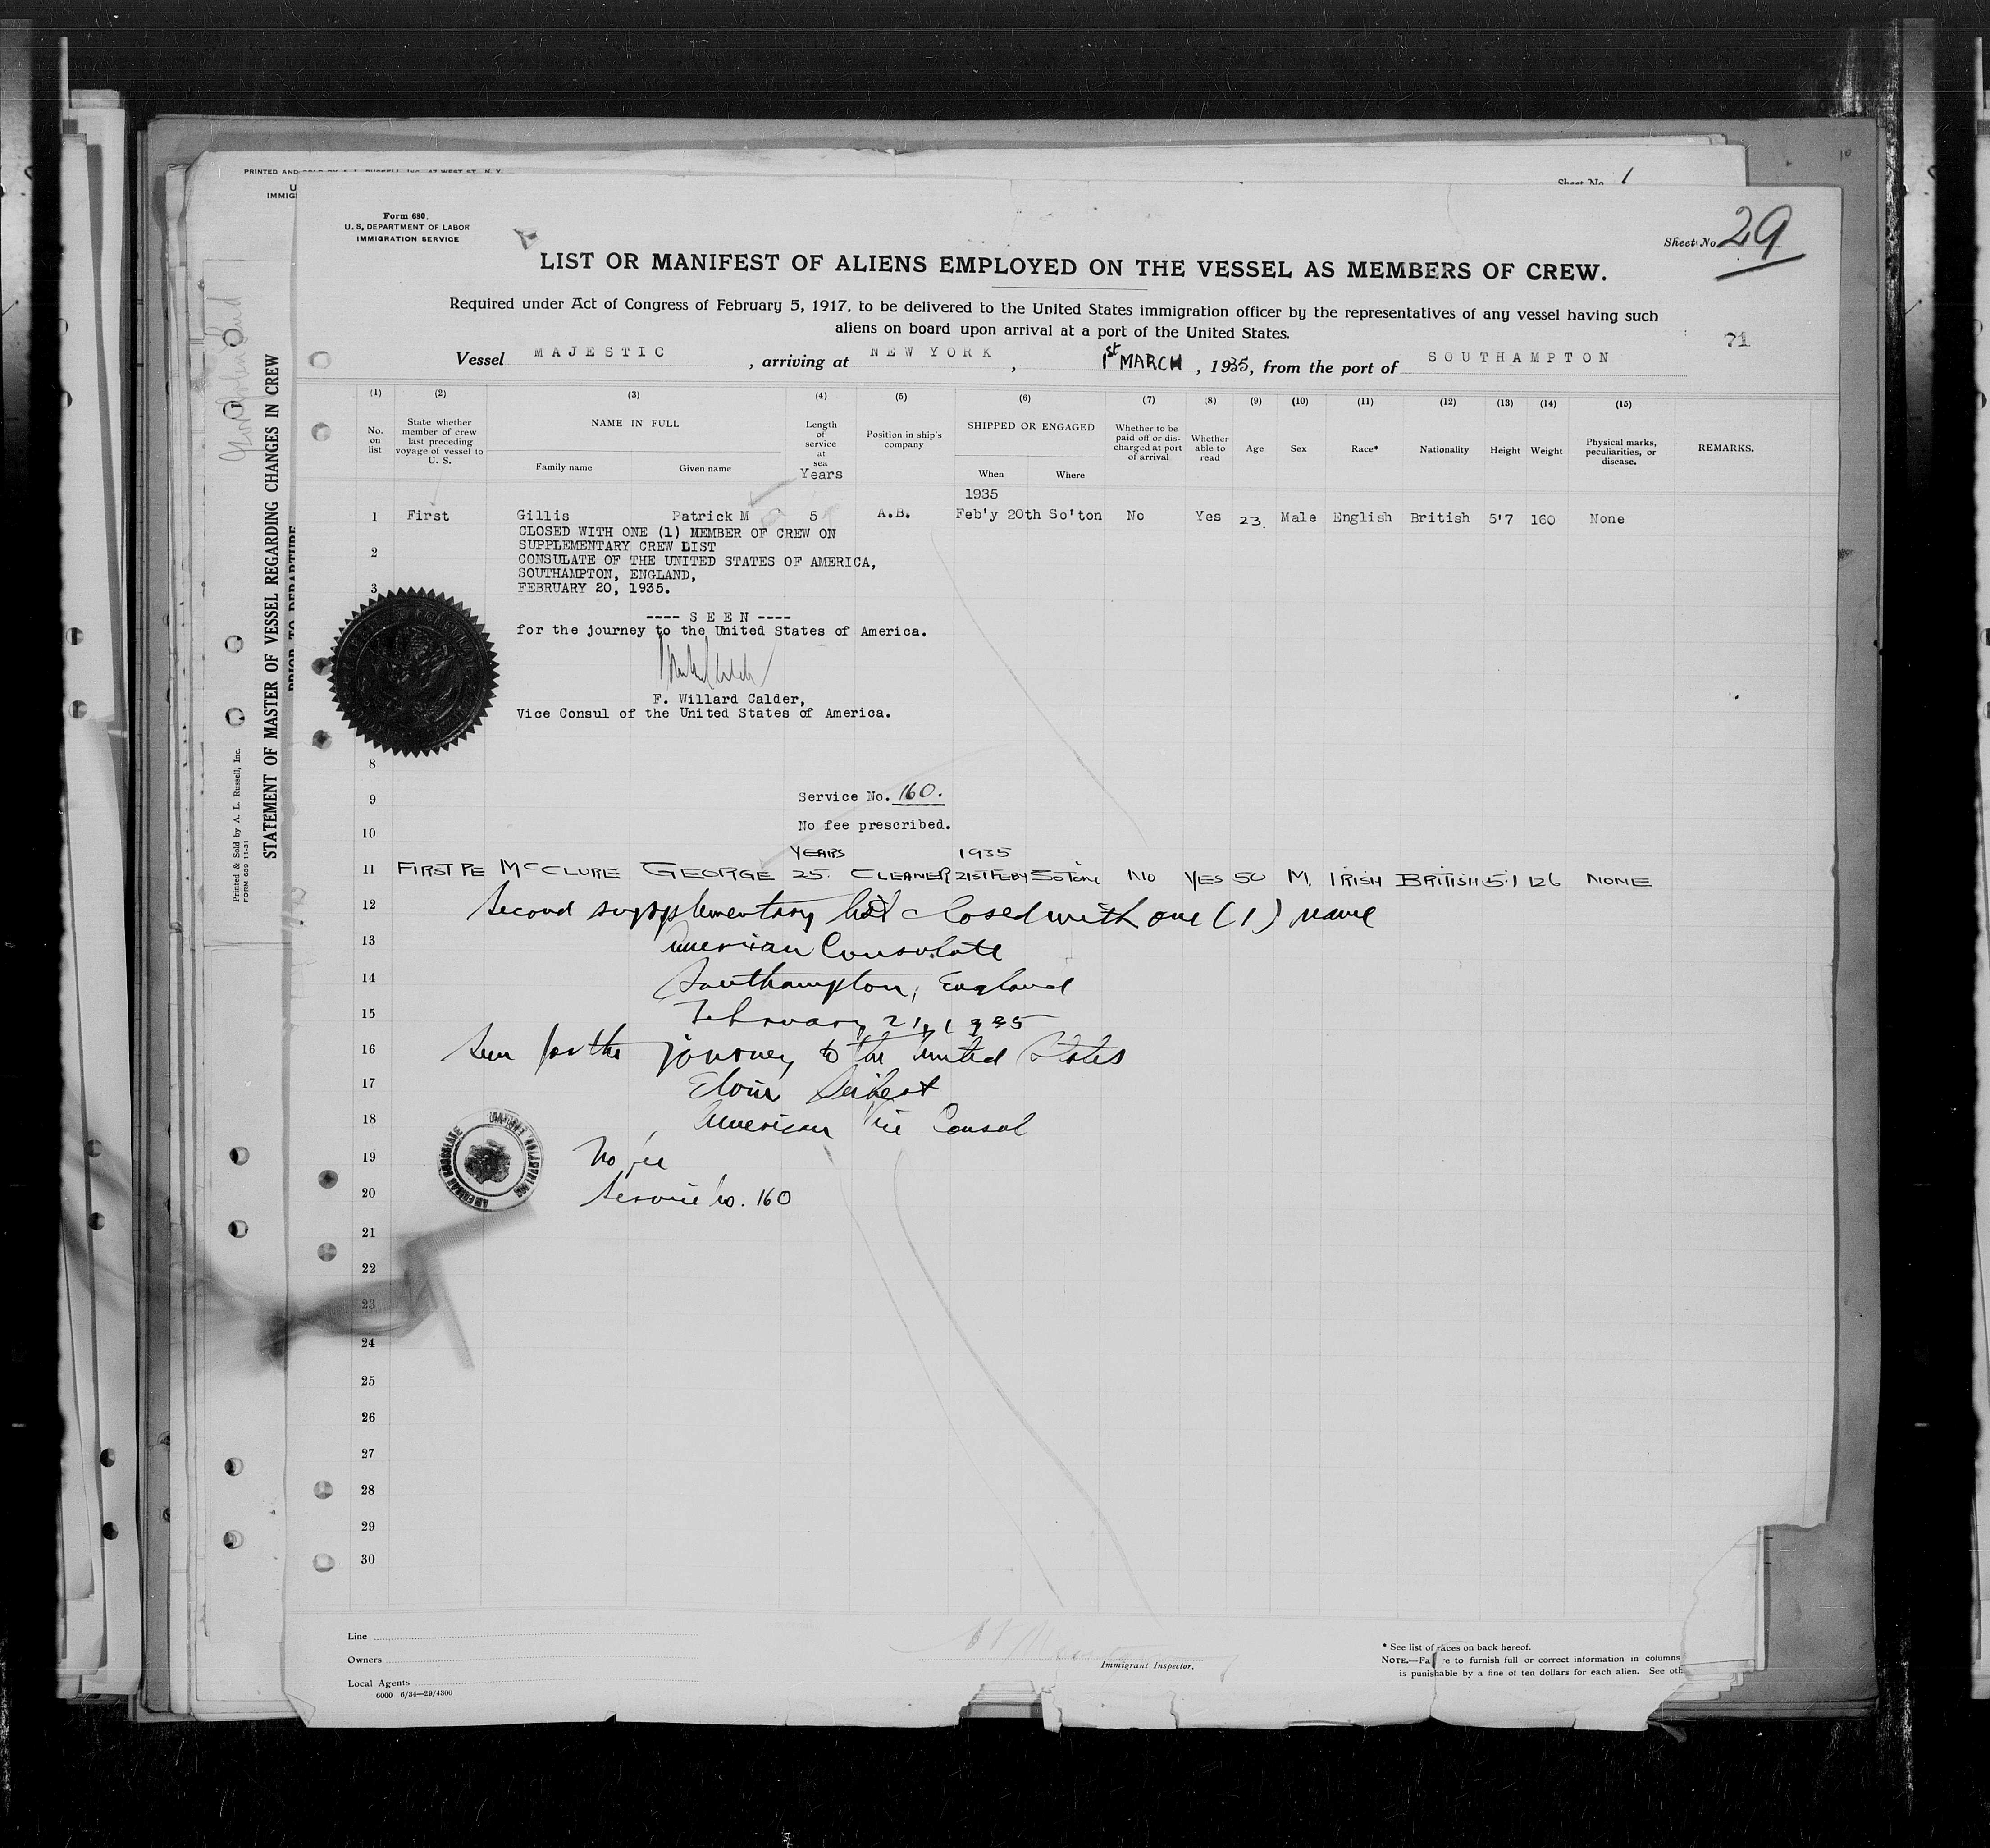 PRINTED AND SOLD BY A. L. RUSSELL, INC., 47 WEST ST. N. Y.
Sheet No. 1
U
IMMIG
Form 680.
U. S. DEPARTMENT OF LABOR
IMMIGRATION SERVICE
Sheet No 29
LIST OR MANIFEST OF ALIENS EMPLOYED ON THE VESSEL AS MEMBERS OF CREW.
Required under Act of Congress of February 5, 1917, to be delivered to the United States immigration officer by the representatives of any vessel having such
aliens on board upon arrival at a port of the United States.
71
Vessel MAJESTIC, arriving at NEW YORK, 1st MARCH, 1935, from the port of SOUTHAMPTON
(1) (2) (3) (4) (5) (6) (7) (8) (9) (10) (11) (12) (13) (14) (15)
No. on list
State whether member of crew last preceding voyage of vessel to U. S.
NAME IN FULL
Family name Given name
Length of service at sea
Years
Position in ship's company
SHIPPED OR ENGAGED
When Where
Whether to be paid off or discharged at port of arrival
Whether able to read
Age
Sex
Race*
Nationality
Height
Weight
Physical marks, peculiarities, or disease.
REMARKS.
1935
1 First Gillis Patrick M 5 A.B. Feb'y 20th So'ton No Yes 23 Male English British 5'7 160 None
CLOSED WITH ONE (1) MEMBER OF CREW ON
2 SUPPLEMENTARY CREW LIST
CONSULATE OF THE UNITED STATES OF AMERICA,
SOUTHAMPTON, ENGLAND,
3 FEBRUARY 20, 1935.
---- S E E N ----
for the journey to the United States of America.
F. Willard Calder,
Vice Consul of the United States of America.
8
9 Service No. 160.
No fee prescribed.
10
YEARS 1935
11 FIRST PE McCLURE GEORGE 25. CLEANER 21ST FEBY SOTON NO YES 50 M. IRISH BRITISH 5.1 126 NONE
12 Second supplementary list closed with one (1) name
13 American Consulate
14 Southampton, England
15 February 21, 1935
16 Seen for the journey to the United States
17 Elvin Seibert
18 American Vice Consul
AMERICAN CONSULATE
19 No fee
20 Service No. 160
21
22
23
24
25
26
27
28
29
30
Line
Owners
Local Agents
6000 6/34—29/4300
Immigrant Inspector.
* See list of races on back hereof.
NOTE.—Fa re to furnish full or correct information in columns
is punishable by a fine of ten dollars for each alien. See oth
STATEMENT OF MASTER OF VESSEL REGARDING CHANGES IN CREW
PRIOR TO DEPARTURE
Printed & Sold by A. L. Russell, Inc.
FORM 689 11-31